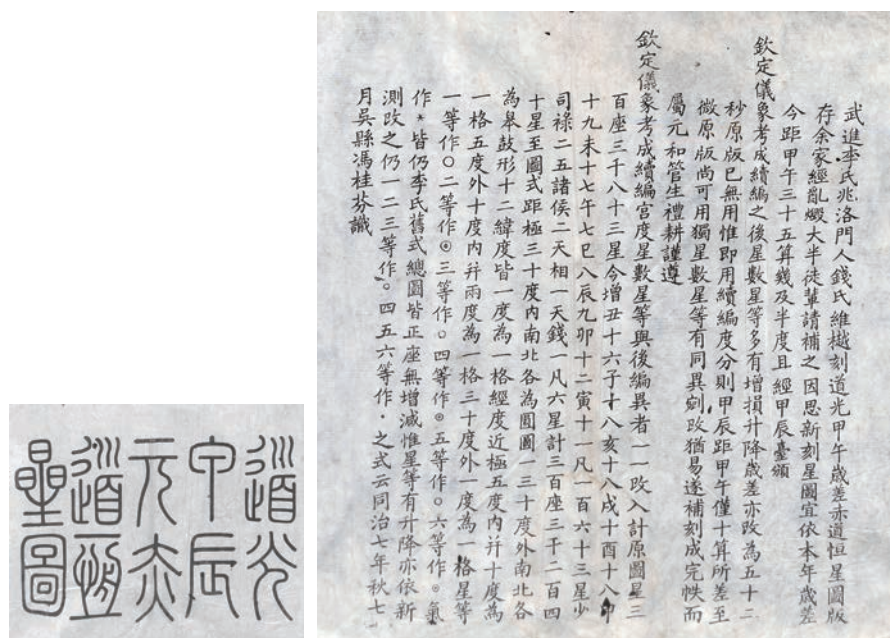 道光
甲辰
元赤
道恆
星圖
武進李氏兆洛門人錢氏維樾刻道光甲午歲差赤道恒星圖版
存余家經亂燬大半徒輩請補之因思新刻星圖宜依本年歲差
今距甲午三十五算幾及半度且經甲辰臺頒
欽定儀象考成續編之後星數星等多有增損升降歲差亦改為五十二
秒原版已無用惟即用續編度分則甲辰距甲午僅十算所差至
微原版尚可用獨星數星等有同異剜改猶易遂補刻成完帙而
屬元和管生禮耕謹遵
欽定儀象考成續編宮度星數星等與後編異者一一改入計原圖星三
百座三千八十三星今增丑十六子十八亥十八戌十酉十八申
十九未十七午七巳八辰九卯十二寅十一凡一百六十三星少
司祿二五諸侯二天相一天錢一凡六星計三百座三千二百四
十星至圖式距極三十度內南北各為圓圖一三十度外南北各
為皋鼓形十二緯度皆一度為一格經度近極五度內并十度為
一格五度外十度內并兩度為一格三十度外一度為一格星等
一等作○二等作◎三等作○四等作◎五等作○六等作。氣
作*皆仍李氏舊式總圖皆正座無增減惟星等有升降亦依新
測改之仍一二三等作。四五六等作・之式云同治七年秋七
月吳縣馮桂芬識